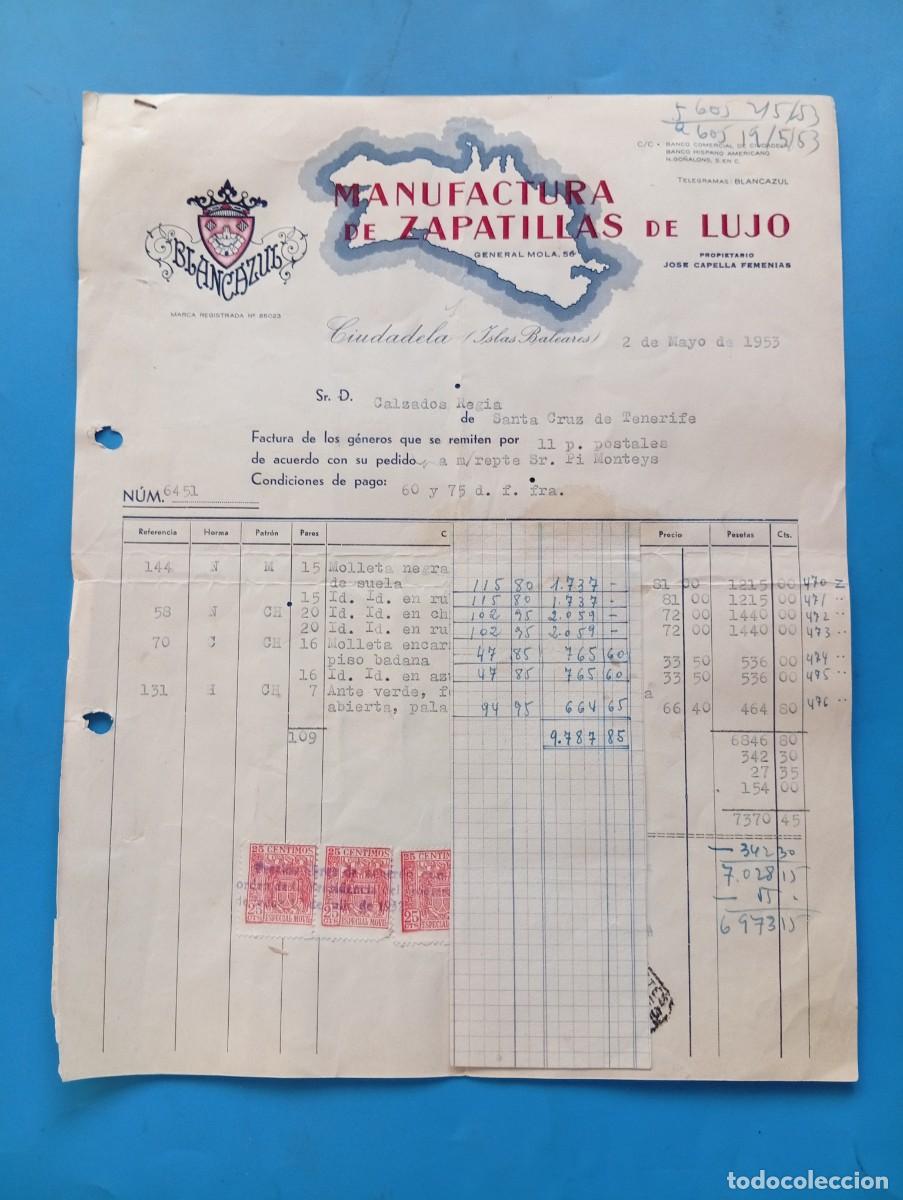 5 605 2/5/53
a 605 19/5/53
C/C • BANCO COMERCIAL DE CIUDADELA
BANCO HISPANO AMERICANO
N. GOÑALONS, S. EN C.
TELEGRAMAS: BLANCAZUL
MANUFACTURA
DE ZAPATILLAS DE LUJO
GENERAL MOLA, 56
PROPIETARIO
JOSE CAPELLA FEMENIAS
BLANCAZUL
MARCA REGISTRADA Nº 85023
Ciudadela (Islas Baleares) 2 de Mayo de 1953
Sr. D. Calzados Regia
de Santa Cruz de Tenerife
Factura de los géneros que se remiten por 11 p. postales
de acuerdo con su pedido a m/repte Sr. Pi Monteys
Condiciones de pago: 60 y 75 d. f. fra.
NÚM. 6451
Referencia Horma Patrón Pares C Precio Pesetas Cts.
144 N M 15 Molleta negra
de suela 115 80 1.737 - 81 00 1215 00 470 z
15 Id. Id. en ru 115 80 1.737 - 81 00 1215 00 471 "
58 N CH 20 Id. Id. en ch 102 95 2.059 - 72 00 1440 00 472 "
20 Id. Id. en ru 102 95 2.059 - 72 00 1440 00 473 "
70 C CH 16 Molleta encar
piso badana 47 85 765 60 33 50 536 00 474 "
16 Id. Id. en azu 47 85 765 60 33 50 536 00 475 "
131 H CH 7 Ante verde, fo
abierta, pala 94 95 664 65 a 66 40 464 80 476 "
109 9.787 85 6846 80
342 30
27 35
154 00
7370 45
- 342 30
7.028 15
- 55 .
6973 15
25 CENTIMOS 25 CENTIMOS 25 CENTIMOS
25 CTS ESPECIAL MOVIL 25 CTS ESPECIAL MOVIL 25 CTS ESPECIAL MOVIL
todocoleccion